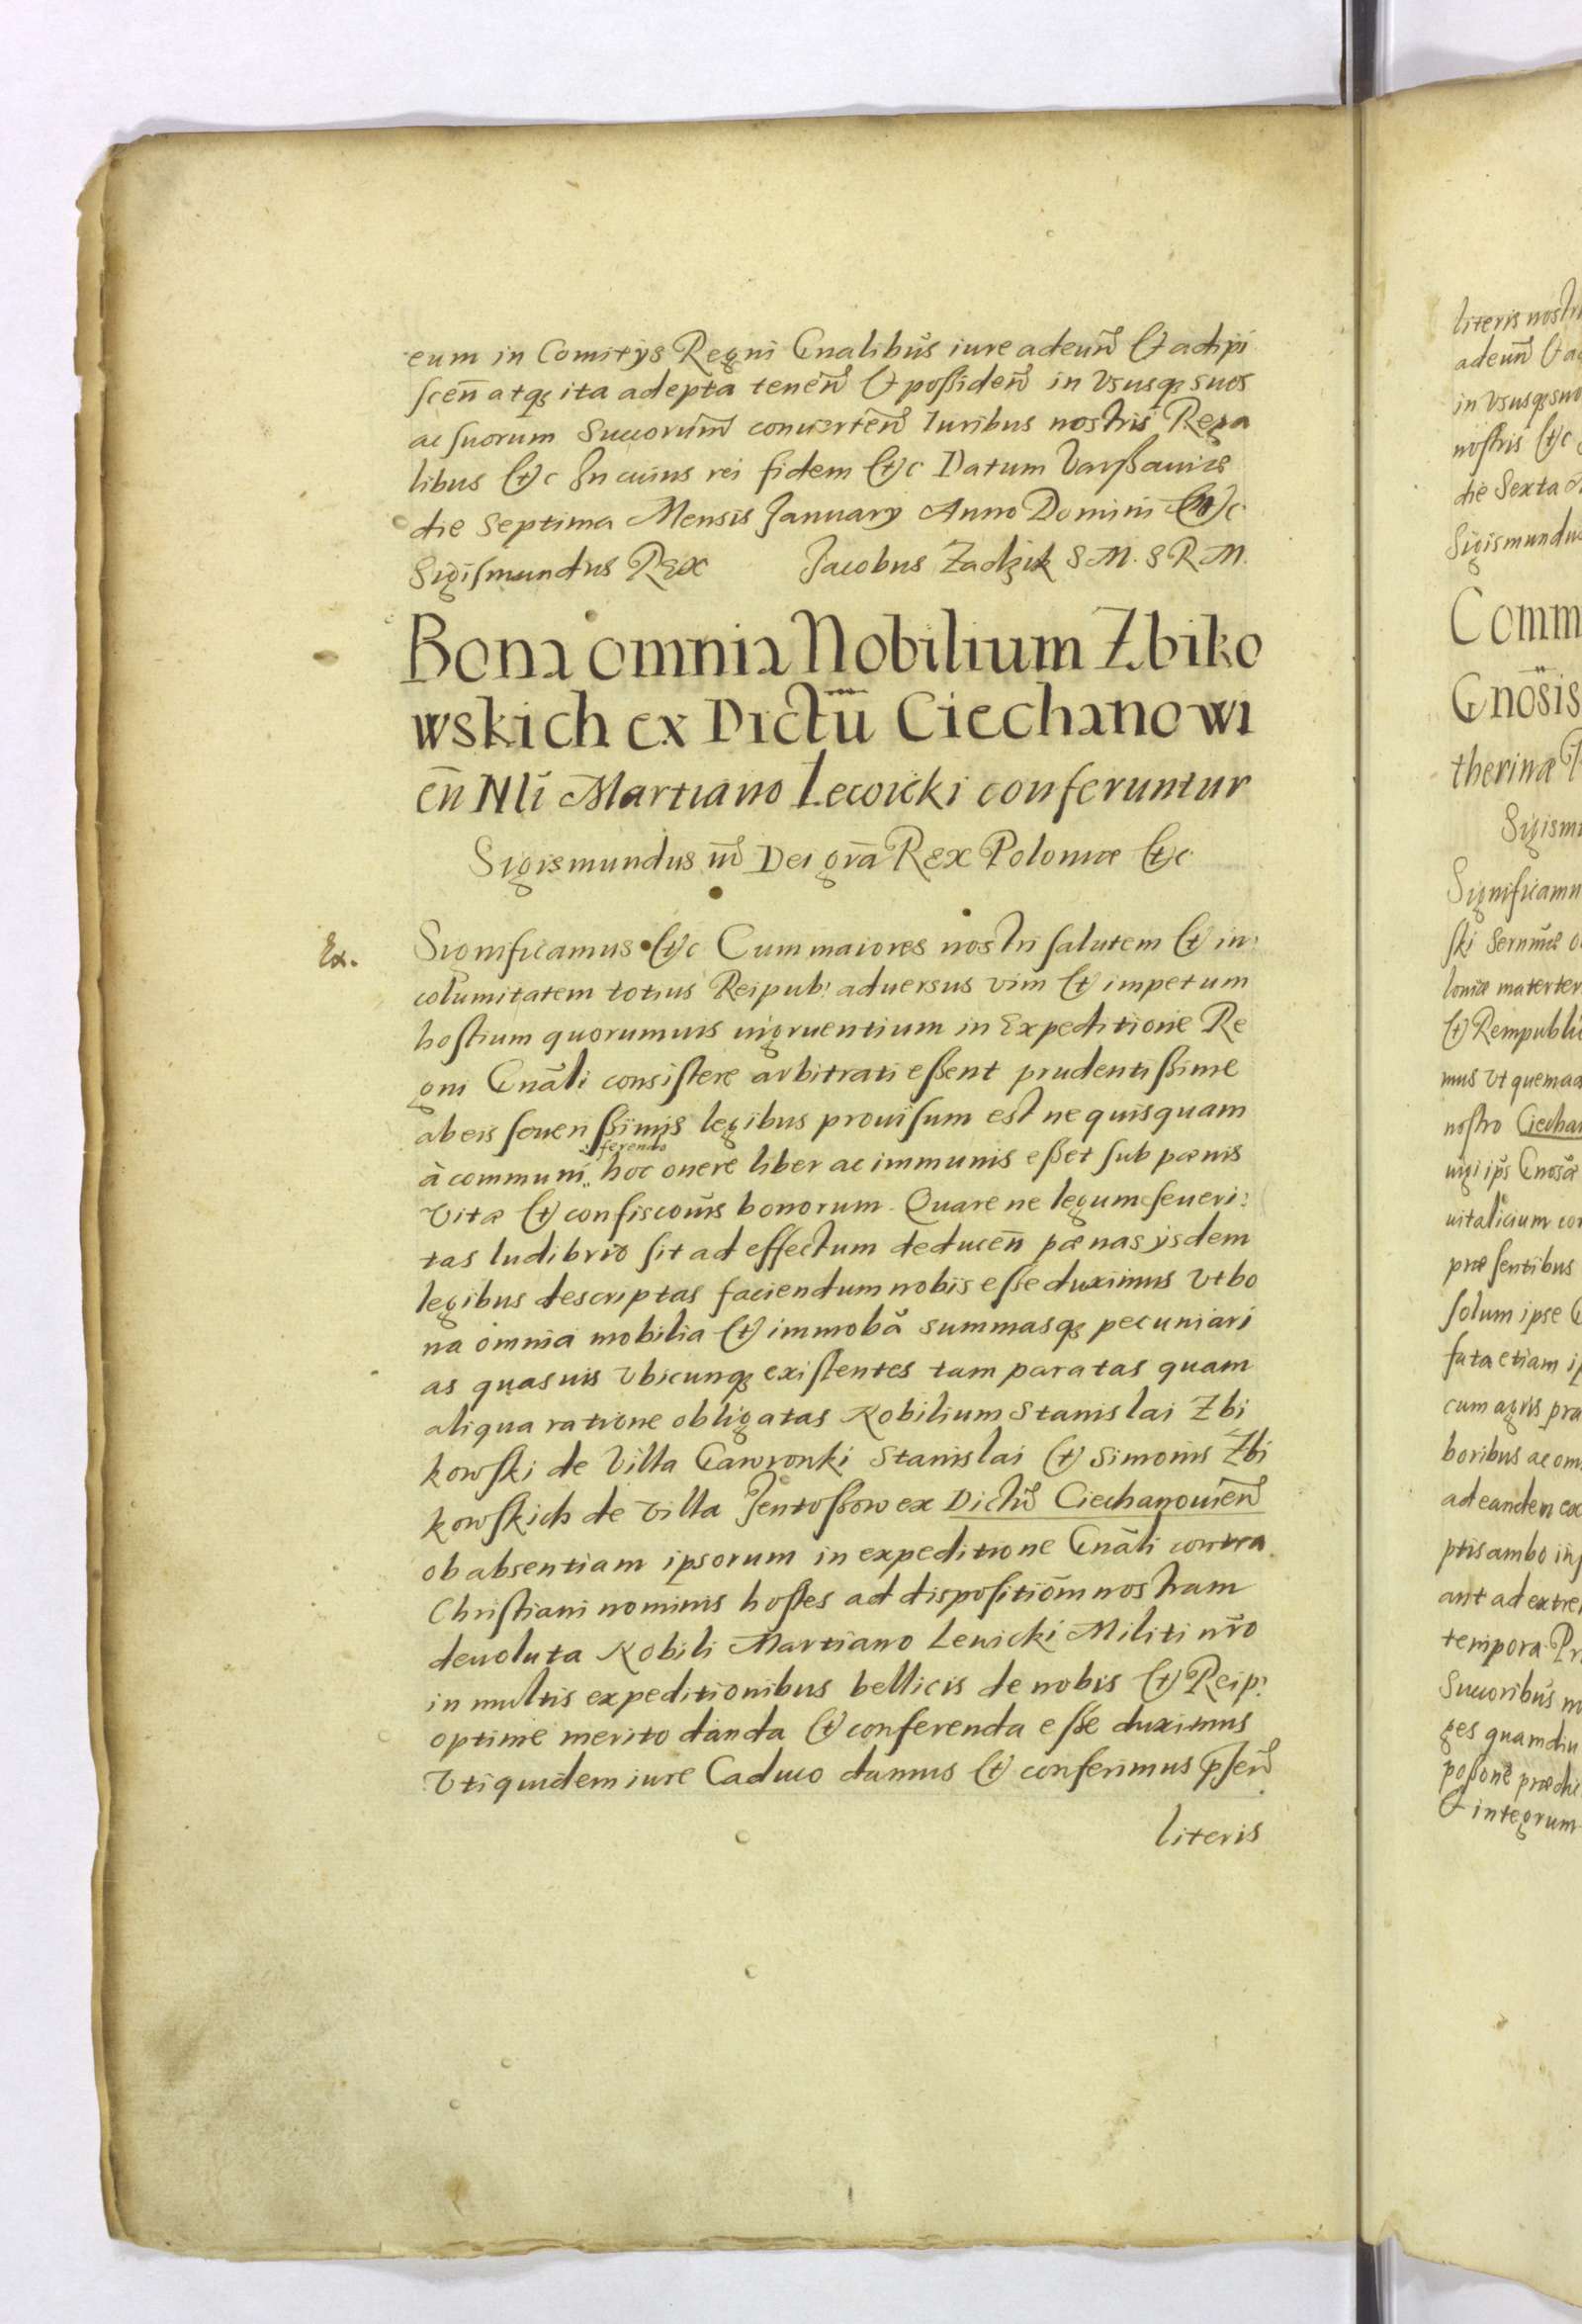 eum in Comitijs Regni Gnalibus iure adeun̄ et adipi
scen̄ atq; ita adepta tenen̄ et possiden̄ in Vsusq; suos
ac suorum Succorum̄ conuerten̄ Iuribus nostris Rega
libus etc In cuius rei fidem etc Datum Varssauiæ
die Septima Mensis January Anno Domini etc
Sigismundus Rex Jacobus Zadzik S M. S R M.
Bona omnia Nobilium Zbiko
wskich ex Dictū Ciechanowi
en̄ Nli Martiano Lewicki conferuntur
Sigismundus Dei gra᷈ Rex Poloniæ etc
Ex. Significamus etc Cum maiores nostri salutem et in:
columitatem totius Reipub: aduersus vim et impetum
hostium quorumuis ingruentium in Expeditione Re
gni Gnāli consistere arbitrati essent prudentissime
ab eis seuerissimis legibus prouisum est ne quisquam
à communi ferendo hoc onere liber ac immunis esset sub pænis
Vitæ et confiscoīs bonorum. Quare ne legum seueri:
tas ludibrio sit ad effectum deducen̄ pænas ijsdem
legibus descriptas faciendum nobis esse duximus Vt bo
na omnia mobilia et immobā summasq; pecuniari
as quasuis Vbicunq; existentes tam paratas quam
aliqua ratione obligatas Nobilium Stanislai Zbi
kowski de Villa Gawronki Stanislai et Simonis Zbi
kowskich de Villa Jentossow ex Dictū Ciechanouien̄
ob absentiam ipsorum in expeditione Gnāli contra
Christiani nominis hostes ad dispositiōm nostram
deuoluta Nobili Martiano Lewicki Militi nr̄o
in multis expeditionibus bellicis de nobis et Reip:
optime merito danda et conferenda esse duximus
Vti quidem iure Caduco damus et conferimus p̄sen̄
literis
literis nostri
adeun̄ et a
in Vsusq; suo
nostris etc
die Sexta
Sigismundus
Comm
Gnōsis
therinæ
Sigism
Significamu
ski
loniæ materter
et Rempubli
mus Vt quemad
nostro Ciechan
Gnosæ
uitalicium con
præsentibus
solum ipse
futa etiam ip
cum agris pra
boribus ac om
ad eandem ex
ptis ambo
ant ad extre
tempora. Pr
Succoribus
ges quamdiu
præ
et integrum